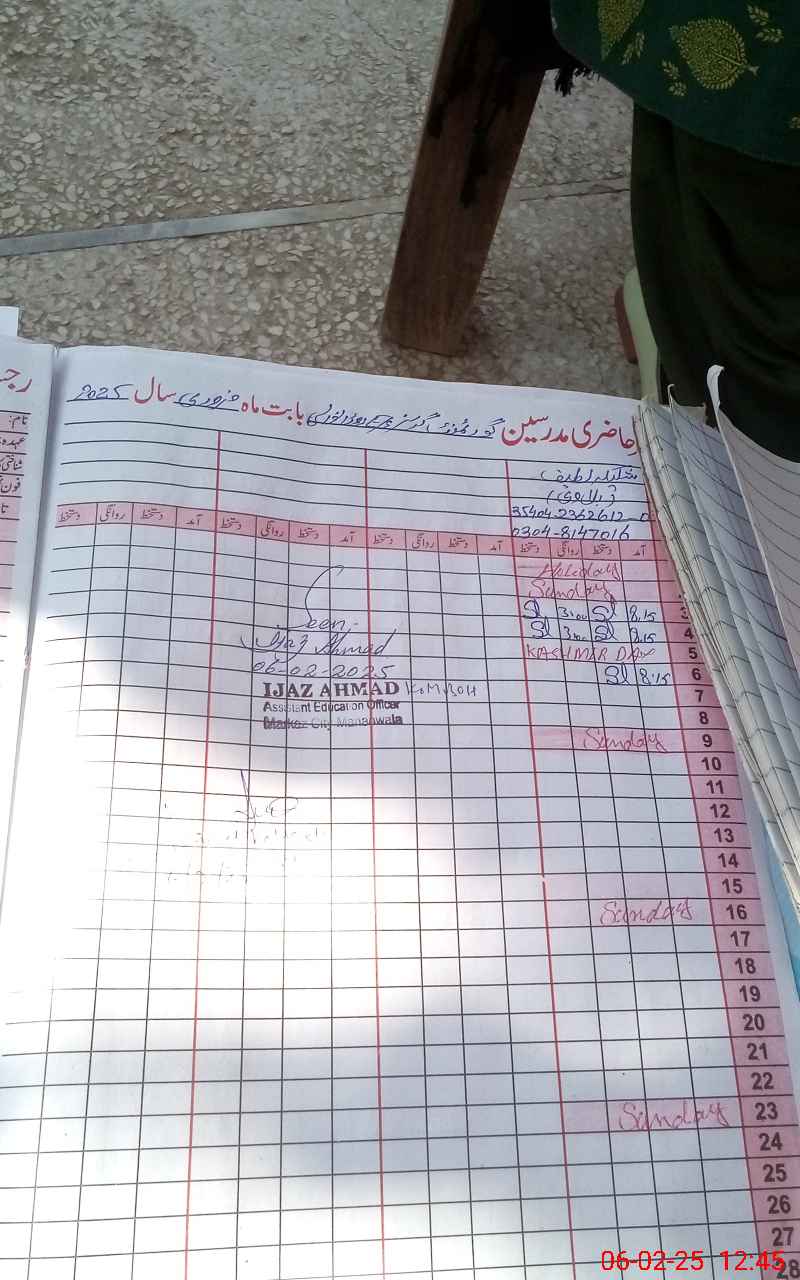 حاضری مدرسین گورنمنٹ گرلز بابت ماہ فروری سال 2025
شکیلہ لطیف
0304-8147016
آمد دستخط روانگی دستخط آمد دستخط روانگی دستخط آمد دستخط روانگی دستخط آمد دستخط روانگی دستخط
Holiday
Sunday
3 8.15 Sl 3:00 Sl
4 8.15 Sl 3:00 Sl
5 KASHMIR DAY
6 8:15 Sl
7
8
9 Sunday
10
11
12
13
14
15
16 Sunday
17
18
19
20
21
22
23 Sunday
24
25
26
27
28
Seen
Ijaz Ahmad
06-02-2025
IJAZ AHMAD KOMBOH
Assistant Education Officer
Markaz City Mananwala
رجس
نام:
عہدہ:
06-02-25 12:45